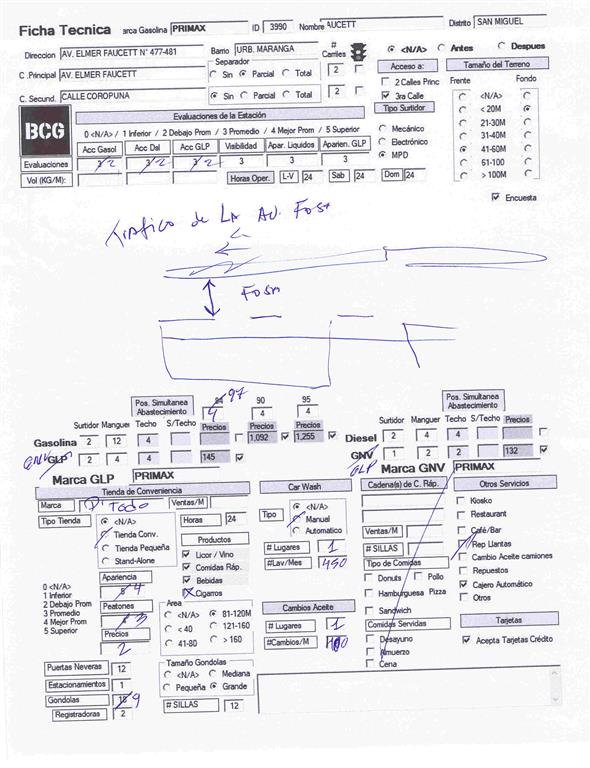 Ficha Tecnica arca Gasolina PRIMAX ID 3990 Nombre AUCETT Distrito SAN MIGUEL
Direccion AV. ELMER FAUCETT N° 477-481 Barrio URB. MARANGA # Carriles <N/A> Antes Despues
C .Principal AV. ELMER FAUCETT Separador Sin Parcial Total 2 Acceso a: 2 Calles Princ 3ra Calle
C. Secund. CALLE COROPUNA Sin Parcial Total 2
Tamaño del Terreno
Frente Fondo
<N/A>
< 20M
21-30M
31-40M
41-60M
61-100
> 100M
Tipo Surtidor
Mecánico
Electrónico
MPD
BCG
Evaluaciones de la Estación
0 <N/A> / 1 Inferior / 2 Debajo Prom / 3 Promedio / 4 Mejor Prom / 5 Superior
Acc Gasol Acc Dsl Acc GLP Visibilidad Apar. Liquidos Aparien. GLP
Evaluaciones 3 2 3 2 3 2 3 3 3
Vol (KG/M): Horas Oper. L-V 24 Sab 24 Dom 24
Encuesta
tráfico de LA AV. Fosa
Fosa
Pos. Simultanea Abastecimiento 84 97 90 95
4 4 4
Surtidor Manguer Techo S/Techo Precios Precios Precios
Gasolina 2 12 4 1,092 1,255
GNV GLP 2 4 4 145
Pos. Simultanea Abastecimiento
Surtidor Manguer Techo S/Techo Precios
Diesel 2 4 4
GNV 1 2 2 132
GLP
Marca GLP PRIMAX
Marca GNV PRIMAX
Tienda de Conveniencia
Marca D' Todo Ventas/M
Tipo Tienda <N/A>
Tienda Conv.
Tienda Pequeña
Stand-Alone
Horas 24
Productos
Licor / Vino
Comidas Ráp.
Bebidas
Cigarros
0 <N/A>
1 Inferior
2 Debajo Prom
3 Promedio
4 Mejor Prom
5 Superior
Apariencia
4
Peatones
3
Precios
2
Area
<N/A> 81-120M
< 40 121-160
41-80 > 160
Puertas Neveras 12
Estacionamientos 1
Gondolas 18 9
Registradoras 2
Tamaño Gondolas
<N/A> Mediana
Pequeña Grande
# SILLAS 12
Car Wash
Tipo <N/A>
Manual
Automatico
# Lugares 1
#Lav/Mes 450
Cambios Aceite
# Lugares 1
#Cambios/M
Cadena(s) de C. Ráp.
Ventas/M
# SILLAS
Tipo de Comidas
Donuts Pollo
Hamburguesa Pizza
Sandwich
Comidas Servidas
Desayuno
Almuerzo
Cena
Otros Servicios
Kiosko
Restaurant
Café/Bar
Rep Llantas
Cambio Aceite camiones
Repuestos
Cajero Automático
Otros
Tarjetas
Acepta Tarjetas Crédito